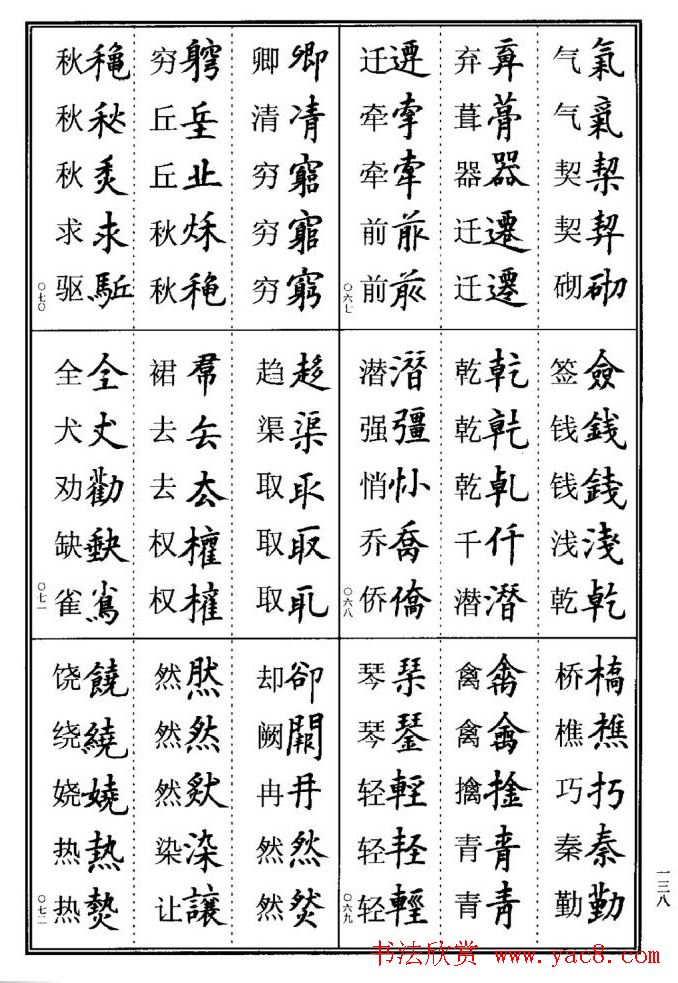 氣氣栔契砌
气气契契砌
弃葺器遷遷
弃葺器迁迁
遷牽牽前前
迁牵牵前前
〇六七
僉錢錢淺乾
签钱钱浅乾
乾乾乾仟潛
乾乾乾千潜
潛彊悄喬僑
潜强悄乔侨
〇六八
橋樵巧秦勤
桥樵巧秦勤
禽禽擒青青
禽禽擒青青
琴琴輕輕輕
琴琴轻轻轻
〇六九
卿凊窮窮窮
卿清穷穷穷
丘丘秋秋
穷丘丘秋秋
秋求駈
秋秋秋求驱
〇七〇
趍渠取取取
趋渠取取取
帬去去權權
裙去去权权
仝犬勸缺雀
全犬劝缺雀
〇七一
卻闕冉然然
却阙冉然然
然然然染讓
然然然染让
饒繞嬈熱熱
饶绕娆热热
〇七二
一三八
书法欣赏 www.yac8.com